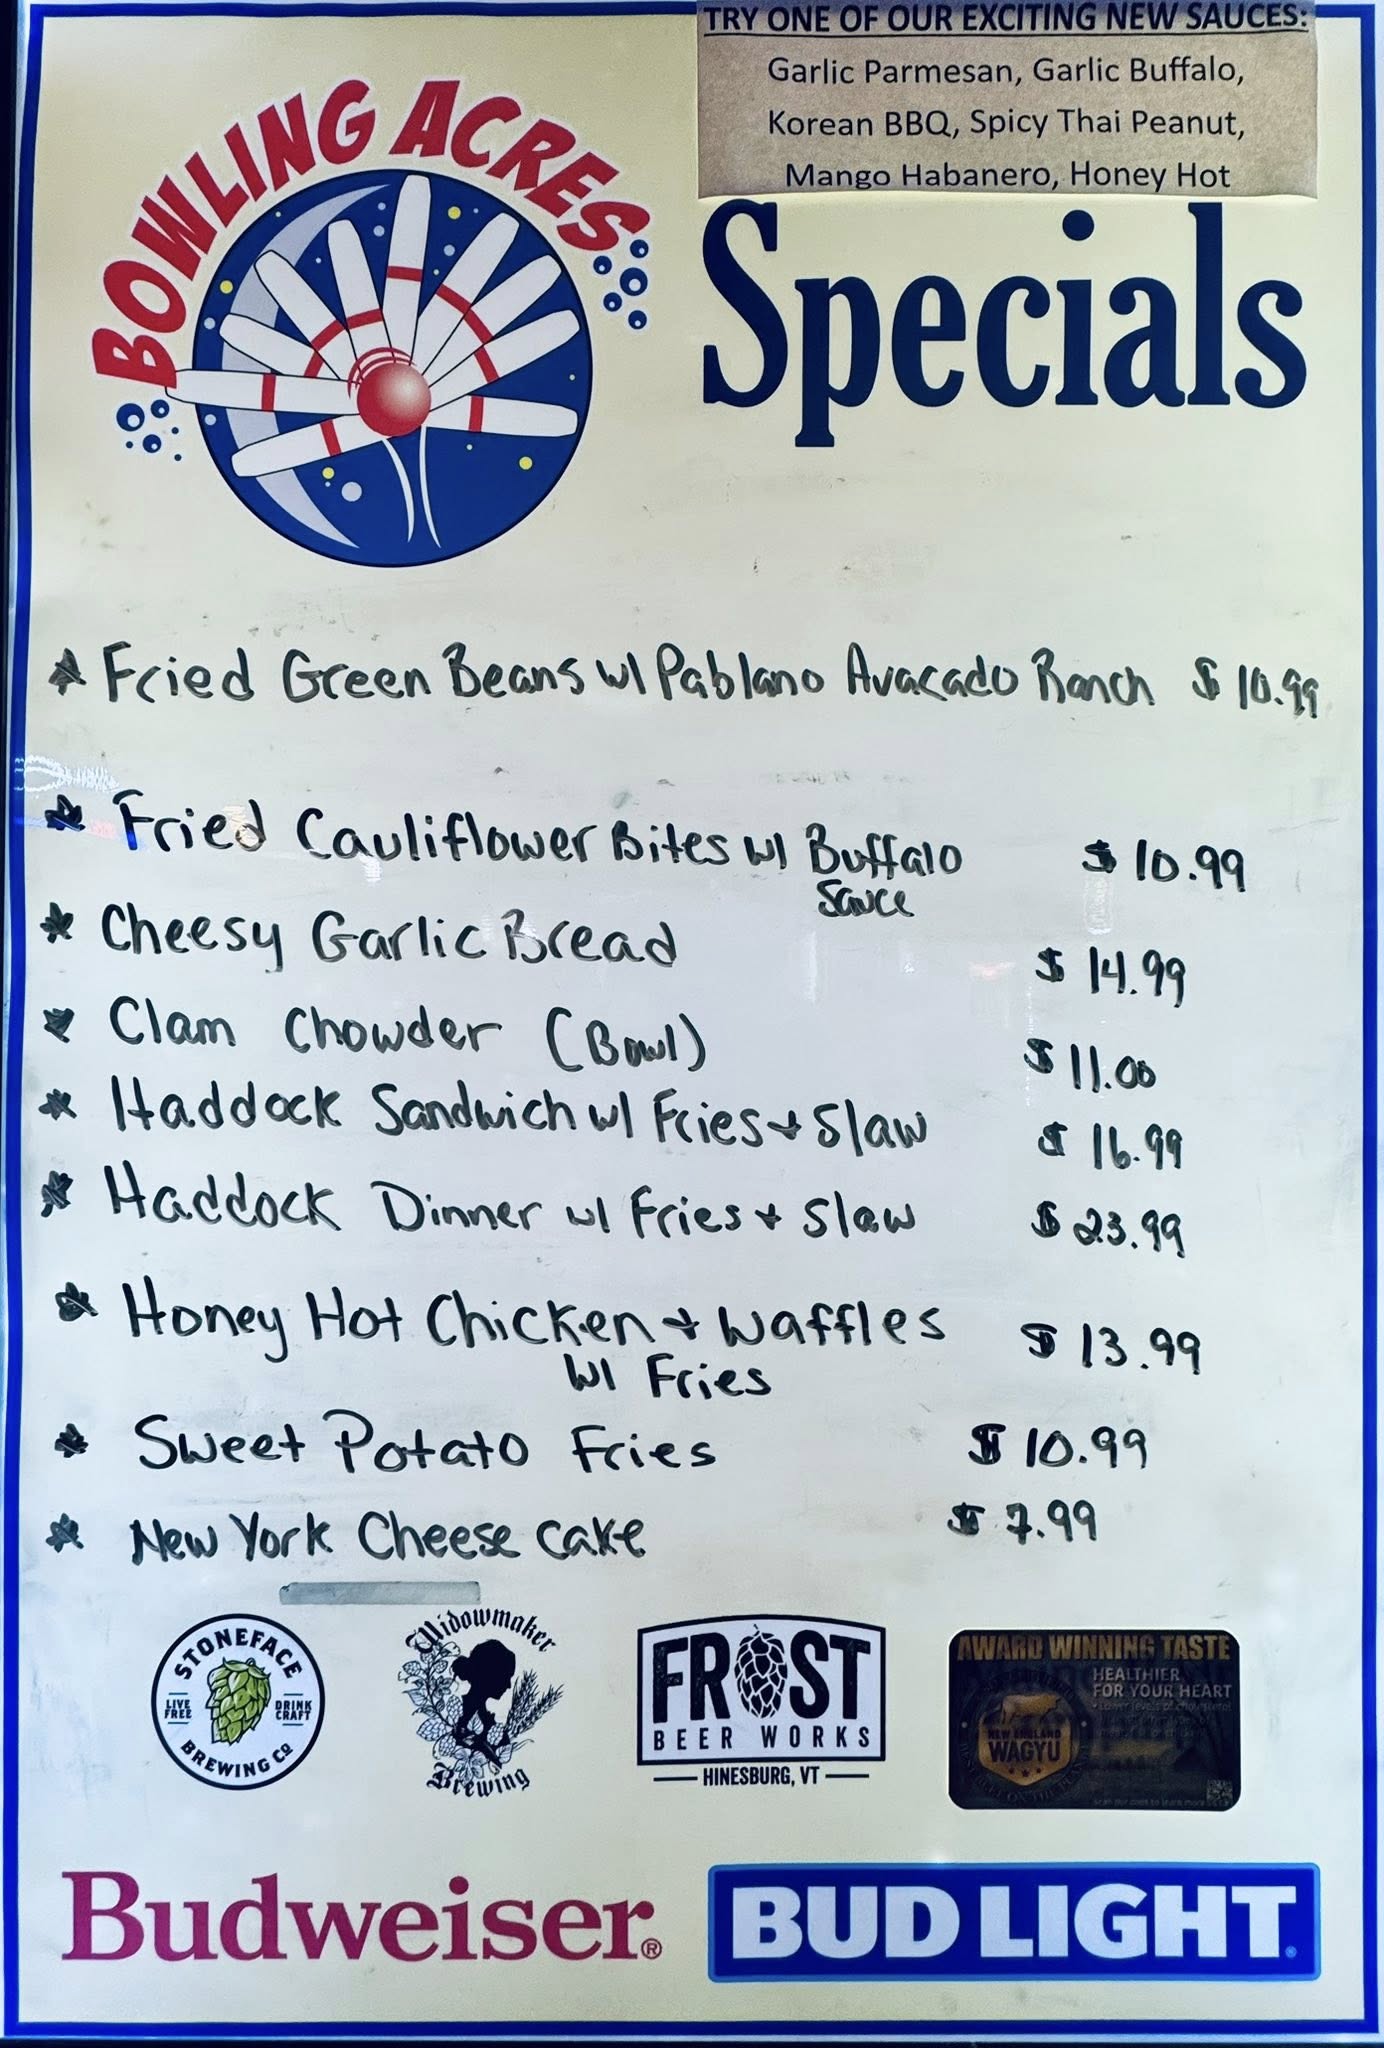 TRY ONE OF OUR EXCITING NEW SAUCES:
Garlic Parmesan, Garlic Buffalo,
Korean BBQ, Spicy Thai Peanut,
Mango Habanero, Honey Hot
BOWLING ACRES
Specials
Fried Green Beans w/ Pablano Avacado Ranch $10.99
Fried Cauliflower Bites w/ Buffalo $10.99
Sauce
Cheesy Garlic Bread $14.99
Clam Chowder (Bowl) $11.00
Haddock Sandwich w/ Fries + Slaw $16.99
Haddock Dinner w/ Fries + Slaw $23.99
Honey Hot Chicken + Waffles $13.99
w/ Fries
Sweet Potato Fries $10.99
New York Cheese cake $7.99
STONEFACE
LIVE FREE
DRINK CRAFT
BREWING CO
Widowmaker
Brewing
FROST
BEER WORKS
HINESBURG, VT
AWARD WINNING TASTE
HEALTHIER
FOR YOUR HEART
NEW ENGLAND
WAGYU
Budweiser®
BUD LIGHT